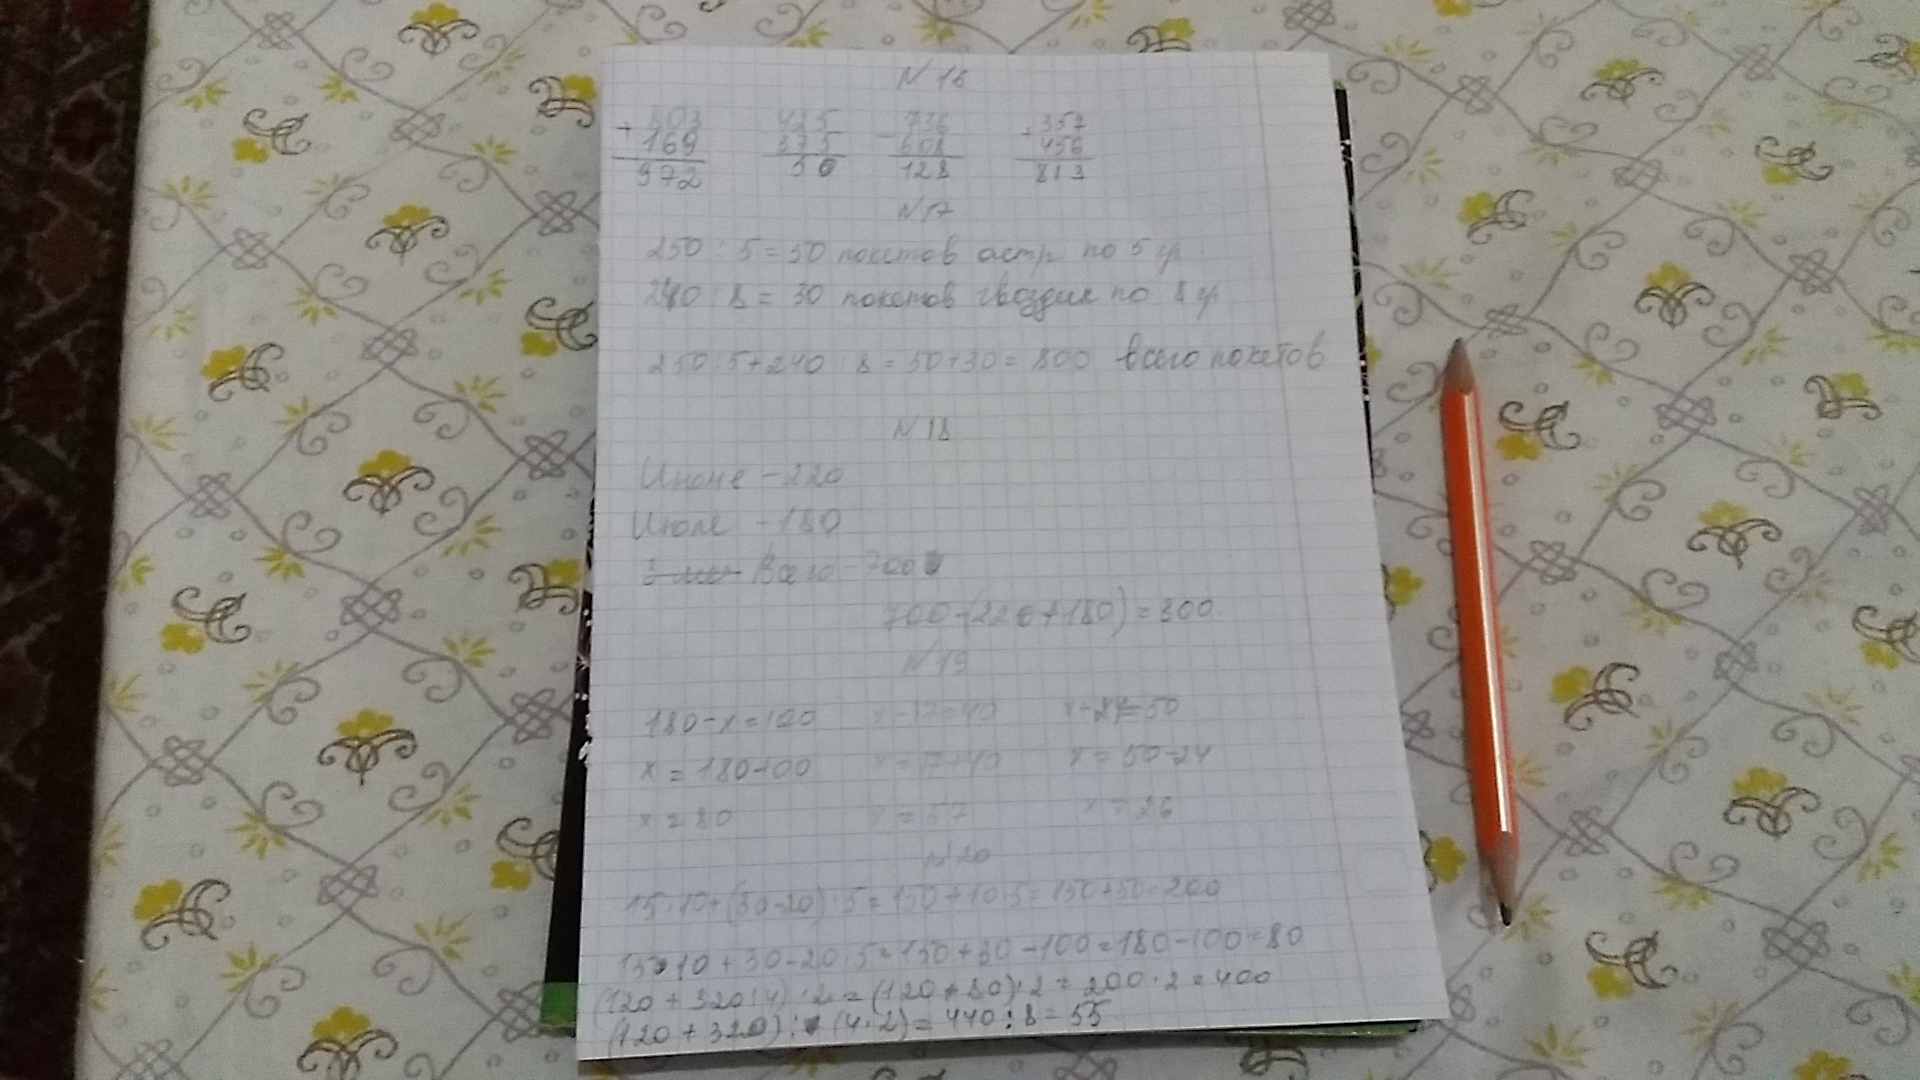 N 16
+803 425 -736 +357
169 375 608 456
972 50 128 813
N 17
250 : 5 = 50 покетов астр по 5 гр
240 : 8 = 30 покетов гвоздик по 8 гр
250 : 5 + 240 : 8 = 50 + 30 = 800 всего покетов
N 18
Июне - 220
Июле - 180
Всего - 700
700 - (220 + 180) = 300
N 19
180 - x = 100 x - 17 = 40 x + 24 = 50
x = 180 - 100 x = 17 + 40 x = 50 - 24
x = 80 x = 57 x = 26
N 20
15 · 10 + (30 - 20) · 5 = 150 + 10 · 5 = 150 + 50 = 200
15 · 10 + 30 - 20 · 5 = 150 + 30 - 100 = 180 - 100 = 80
(120 + 320 : 4) · 2 = (120 + 80) · 2 = 200 · 2 = 400
(120 + 320) : (4 · 2) = 440 : 8 = 55